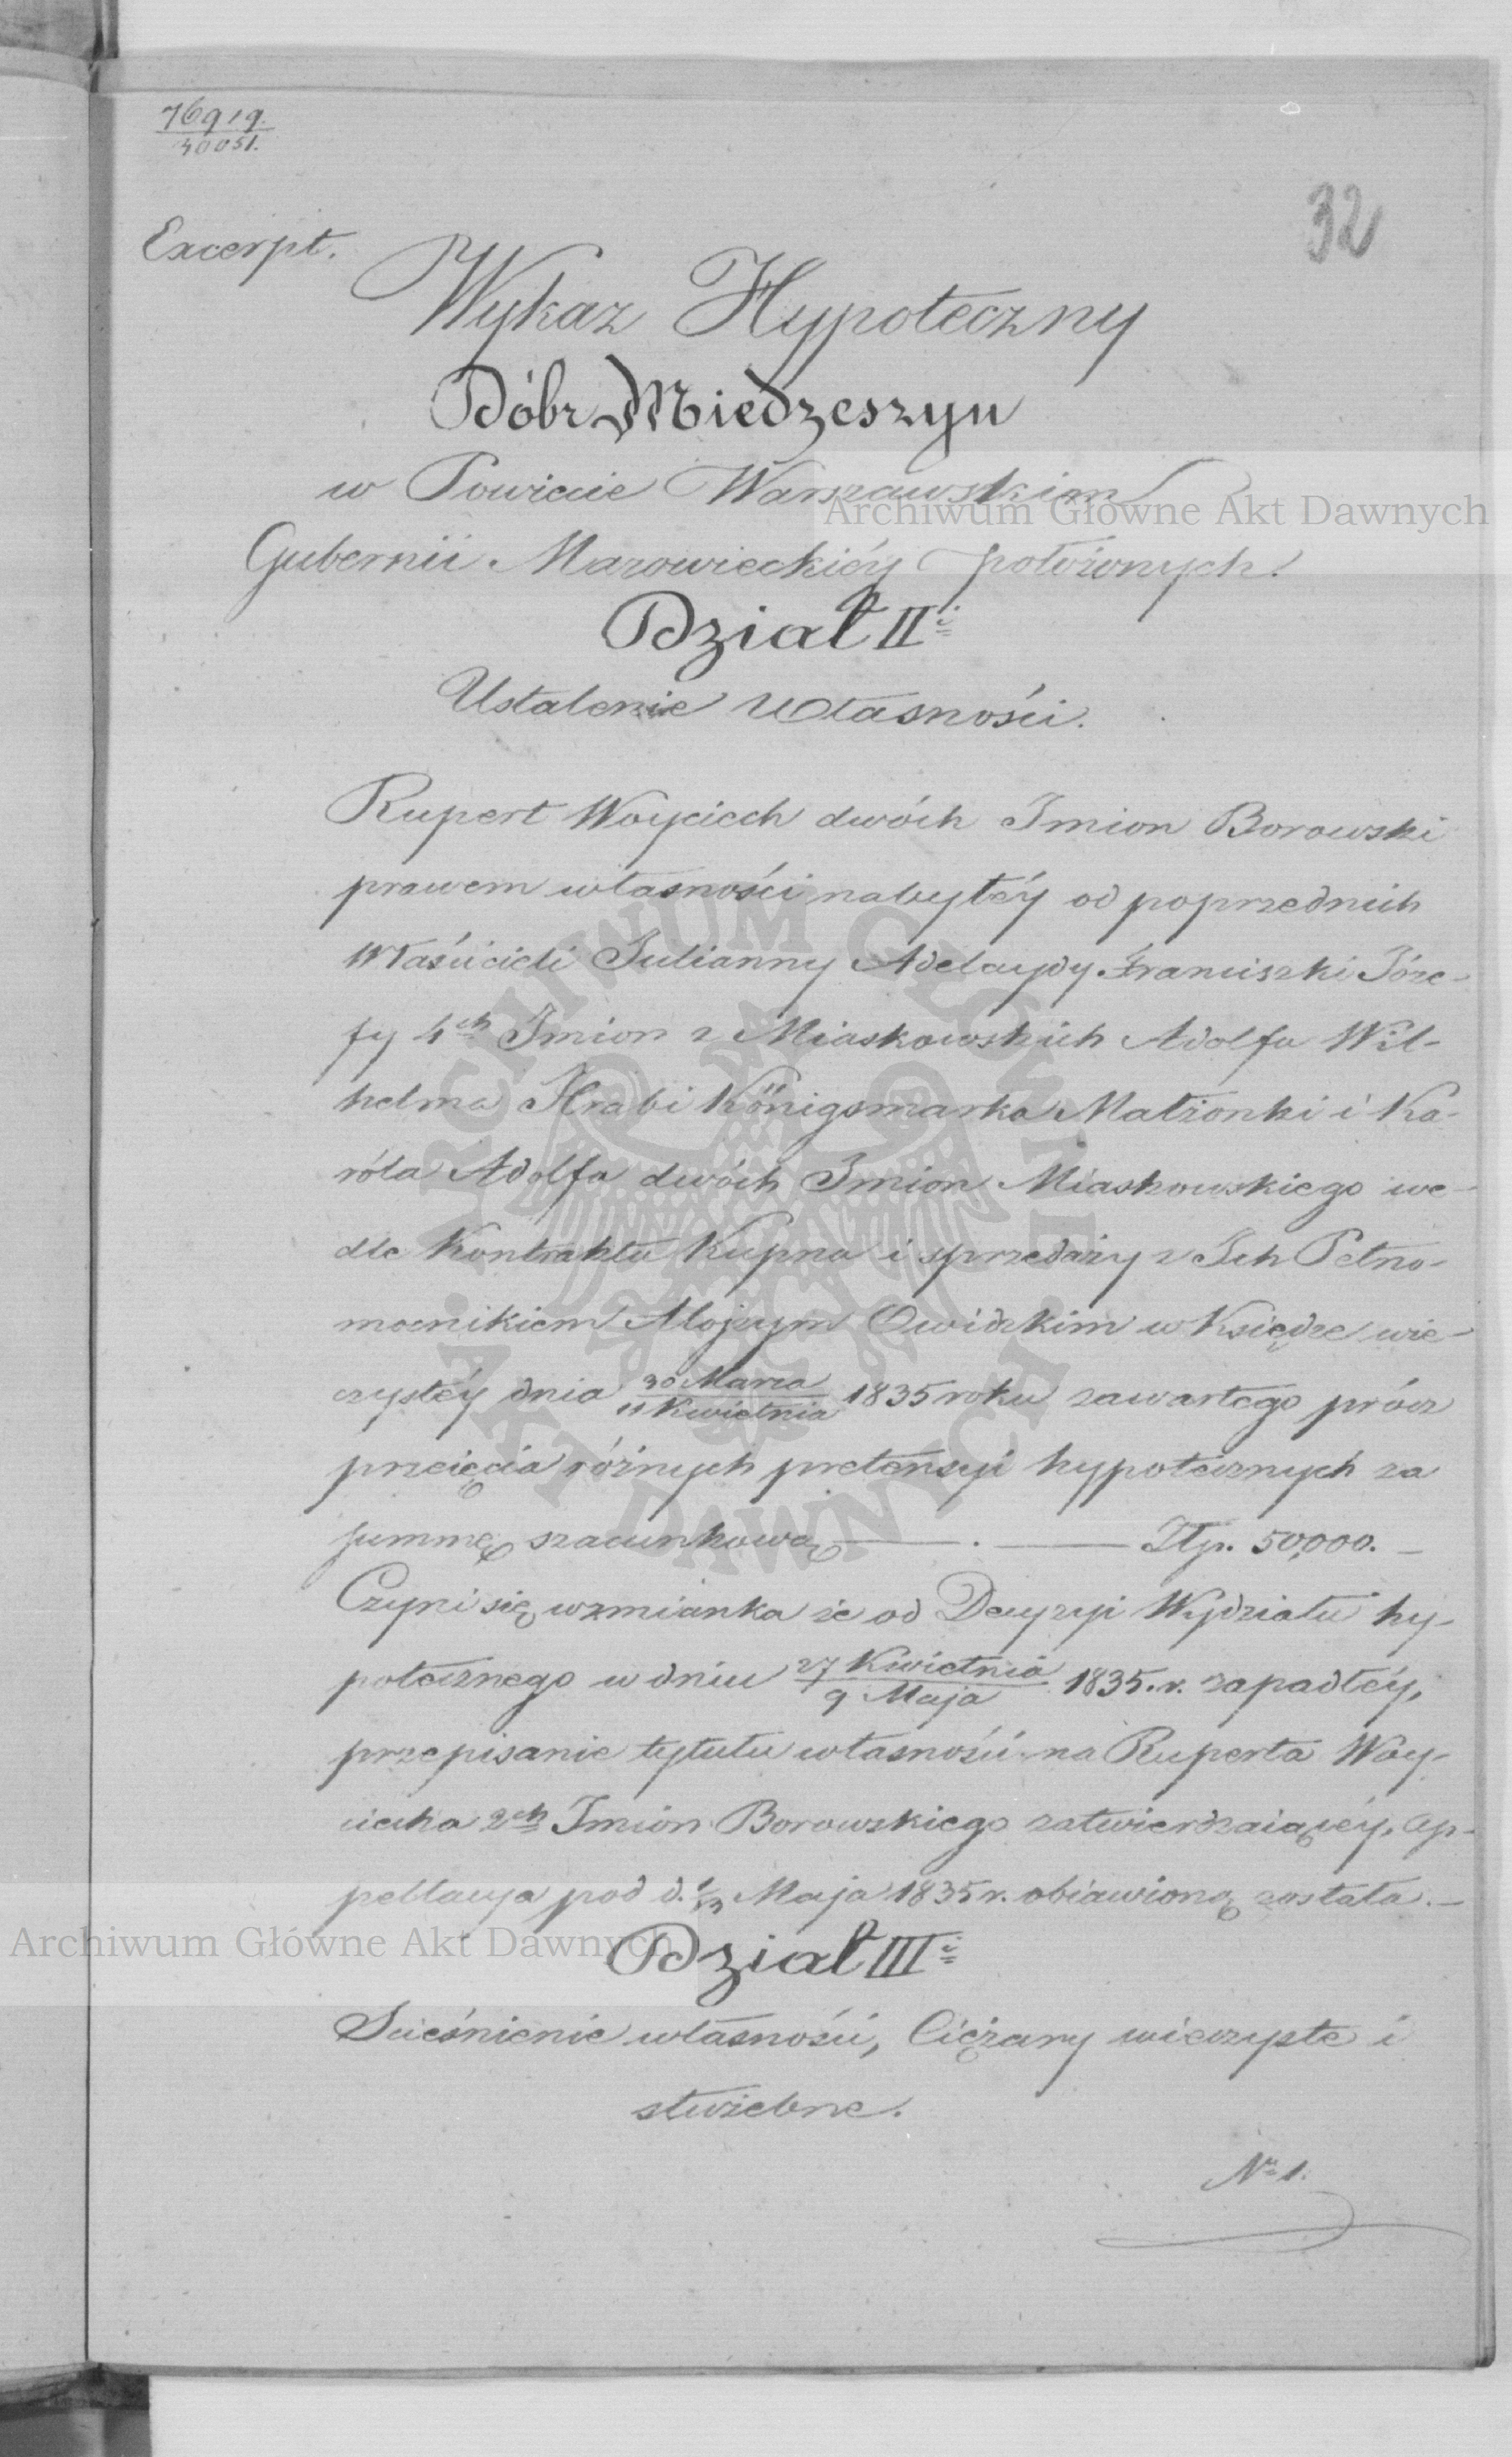 76919.
30051.
32
Excerpt.
Wykaz Hypoteczny
Dóbr Miedzeszyn
w Powiecie Warszawskim
Archiwum Główne Akt Dawnych
Gubernii Mazowieckiéy położonych.
Dział II.
Ustalenie Własności.
Rupert Woyciech dwóch Imion Borowski
prawem własności nabytéy od poprzednich
Właścicieli Julianny Adelaydy Franciszki Józe-
fy 4ch Imion z Miaskowskich Adolfa Wil-
helma Hrabi Königsmarka Małżonki i Ka-
róla Adolfa dwóch Imion Miaskowskiego we-
dle Kontraktu Kupna i sprzedaży z Ich Pełno-
mocnikiem Alojzym Owidzkim w Księdze wie-
czystéy dnia 30 Marca / 11 Kwietnia 1835 roku zawartego prócz
przeięcia różnych pretensyi hypotecznych za
summę szacunkową ——— . ——— Złp. 50,000. —
Czyni się wzmianka że od Decyzyi Wydziału hy-
potecznego w dniu 27 Kwietnia / 9 Maja 1835. r. zapadłéy,
przepisanie tytułu własności na Ruperta Woy-
ciecha 2ch Imion Borowskiego zatwierdzaiącéy, ap-
pellacya pod d. 1/13 Maja 1835 r. obiawioną została. —
Archiwum Główne Akt Dawnych
Dział III.
Scieśnienie własności, Ciężary wieczyste i
służebne.
Nr 1.
ARCHIWUM GŁÓWNE
AKT DAWNYCH